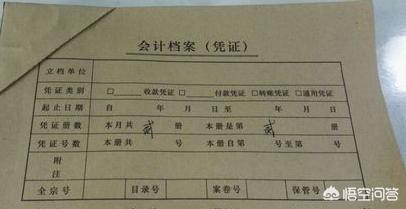 会计档案（凭证）
立档单位
凭证类别 □ 收款凭证 □ 付款凭证 □转账凭证 □通用凭证
起止日期 自 年 月 日至 年 月 日
凭证册数 本月共 贰 册 本册是第 贰 册
凭证号数 本册共 号 本册自第 号至第 号
附注
全宗号 目录号 案卷号 保管号
悟空问答